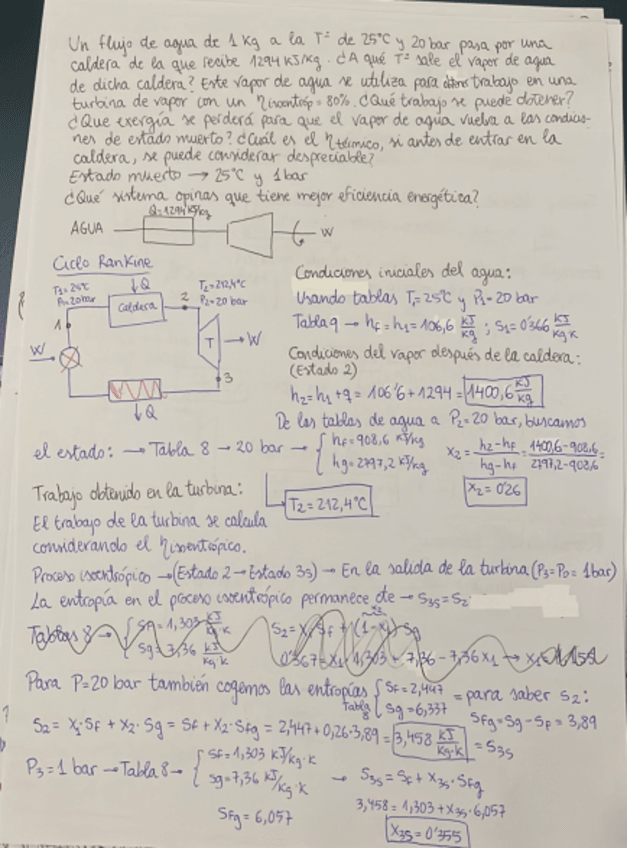 Un flujo de agua de 1 Kg a la Tª de 25°C y 20 bar pasa por una
caldera de la que recibe 1294 KJ/Kg. ¿A qué Tª sale el vapor de agua
de dicha caldera? Este vapor de agua se utiliza para trabajo en una
turbina de vapor con un ηisoentróp = 80%. ¿Qué trabajo se puede obtener?
¿Que exergía se perderá para que el vapor de agua vuelva a las condicio-
nes de estado muerto? ¿Cuál es el ηtérmico, si antes de entrar en la
caldera, se puede considerar despreciable?
Estado muerto → 25°C y 1 bar
¿Qué sistema opinas que tiene mejor eficiencia energética?
Q=1294 KJ/Kg
AGUA
W
Ciclo Rankine
T1=25°C
P1=20bar
Q
Caldera
2
T2=212,4°C
P2=20 bar
1
W
T
→W
3
Q
Condiciones iniciales del agua:
Usando tablas T1=25°C y P1=20 bar
Tabla 9 → hf=h1=106,6 KJ/Kg ; S1=0'366 KJ/Kg·K
Condiciones del vapor después de la caldera:
(Estado 2)
h2=h1+q = 106'6+1294 = 1400,6 KJ/Kg
De las tablas de agua a P2=20 bar, buscamos
el estado: → Tabla 8 → 20 bar → { hf=908,6 KJ/Kg
hg=2797,2 KJ/Kg
x2 = h2-hf/hg-hf = 1400,6-908,6/2797,2-908,6 =
x2=0'26
T2=212,4°C
Trabajo obtenido en la turbina:
El trabajo de la turbina se calcula
considerando el ηisoentrópico.
Proceso isoentrópico →(Estado 2→Estado 3s) → En la salida de la turbina (P3=P0=1bar)
La entropía en el proceso isoentrópico permanece cte → S3s=S2
Tablas 8 → { Sf=1,303 KJ/Kg·K
Sg=7,36 KJ/Kg·K
Para P=20 bar también cogemos las entropías { Sf=2,447
Tabla 8
Sg=6,337
= para saber S2:
Sfg=Sg-Sf=3,89
S2 = x1·Sf + x2·Sg = Sf + x2·Sfg = 2,447+0,26·3,89 = 3,458 KJ/Kg·K = S3s
P3=1 bar → Tabla 8 → { Sf=1,303 KJ/Kg·K
Sg=7,36 KJ/Kg·K
→ S3s=Sf+x3s·Sfg
3,458=1,303+x3s·6,057
Sfg = 6,057
x3s=0'355